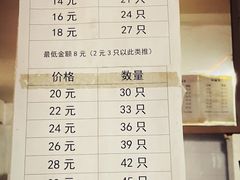 14 元 21 只
16 元 24 只
18 元 27 只
最低金额 8 元（2 元 3 只以此类推）
价格 数量
20 元 30 只
22 元 33 只
24 元 36 只
26 元 39 只
28 元 42 只